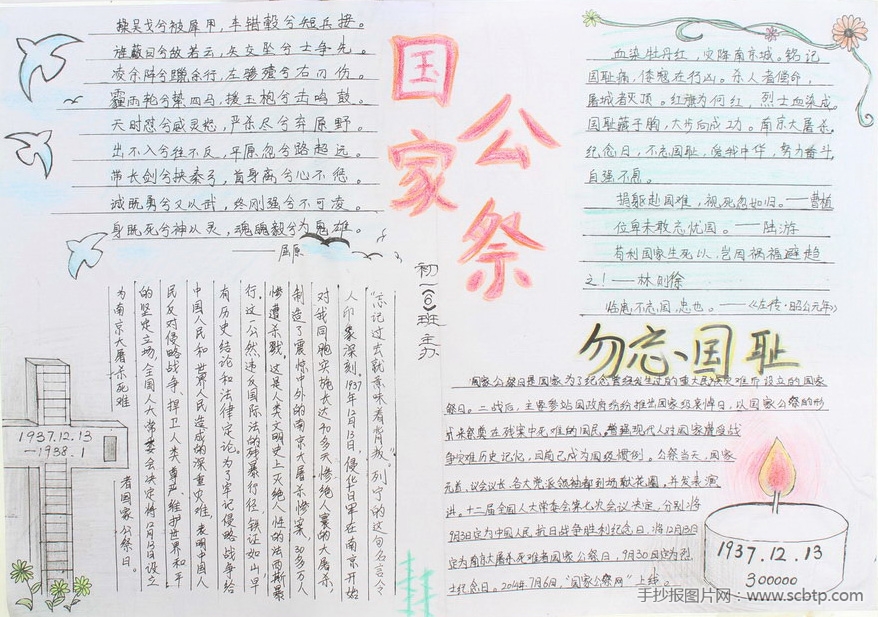 操吴戈兮被犀甲，车错毂兮短兵接。
旌蔽日兮敌若云，矢交坠兮士争先。
凌余阵兮躐余行，左骖殪兮右刃伤。
霾两轮兮絷四马，援玉枹兮击鸣鼓。
天时怼兮威灵怒，严杀尽兮弃原野。
出不入兮往不反，平原忽兮路超远。
带长剑兮挟秦弓，首身离兮心不惩。
诚既勇兮又以武，终刚强兮不可凌。
身既死兮神以灵，魂魄毅兮为鬼雄。
——屈原
国家
公祭
初一（6）班 主办
血染牡丹红，灾降南京城。铭记
国耻痛，倭寇在行凶。杀人者偿命，
屠城者灭顶。红旗为何红，烈士血染成。
国耻藏于胸，大步向成功。南京大屠杀
纪念日，不忘国耻，爱我中华，努力奋斗，
自强不息。
捐躯赴国难，视死忽如归。——曹植
位卑未敢忘忧国。——陆游
苟利国家生死以，岂因祸福避趋
之！——林则徐
临患不忘国，忠也。——《左传·昭公元年》
勿忘、国耻
"忘记过去就意味着背叛。"列宁的这句名言令
人印象深刻。1937年12月13日，侵华日军在南京开始
对我同胞实施长达40多天惨绝人寰的大屠杀，
制造了震惊中外的南京大屠杀惨案，30多万人
惨遭杀戮。这是人类文明史上灭绝人性的法西斯暴
行。这一公然违反国际法的残暴行径，铁证如山，早
有历史结论和法律定论。为了牢记侵略战争给
中国人民和世界人民造成的深重灾难，表明中国人
民反对侵略战争、捍卫人类尊严、维护世界和平
的坚定立场，全国人大常委会决定将12月13日设立
为南京大屠杀死难
者国家公祭日。
1937.12.13
—1938.1
国家公祭日是国家为了纪念曾经发生过的重大民族灾难而设立的国家
祭日。二战后，主要参战国政府纷纷推出国家级哀悼日，以国家公祭的形
式来祭奠在残害中死难的国民，增强现代人对国家遭受战
争灾难历史记忆，目前已成为国际惯例。公祭当天，国家
元首，议会议长，各大党派领袖都到场献花圈，并发表演
讲。十二届全国人大常委会第七次会议决定，分别将
9月3日定为中国人民抗日战争胜利纪念日，将12月13日
定为南京大屠杀死难者国家公祭日，9月30日定为烈
士纪念日。2014年7月6日，"国家公祭网"上线。
1937.12.13
300000
手抄报图片网：www.scbtp.com